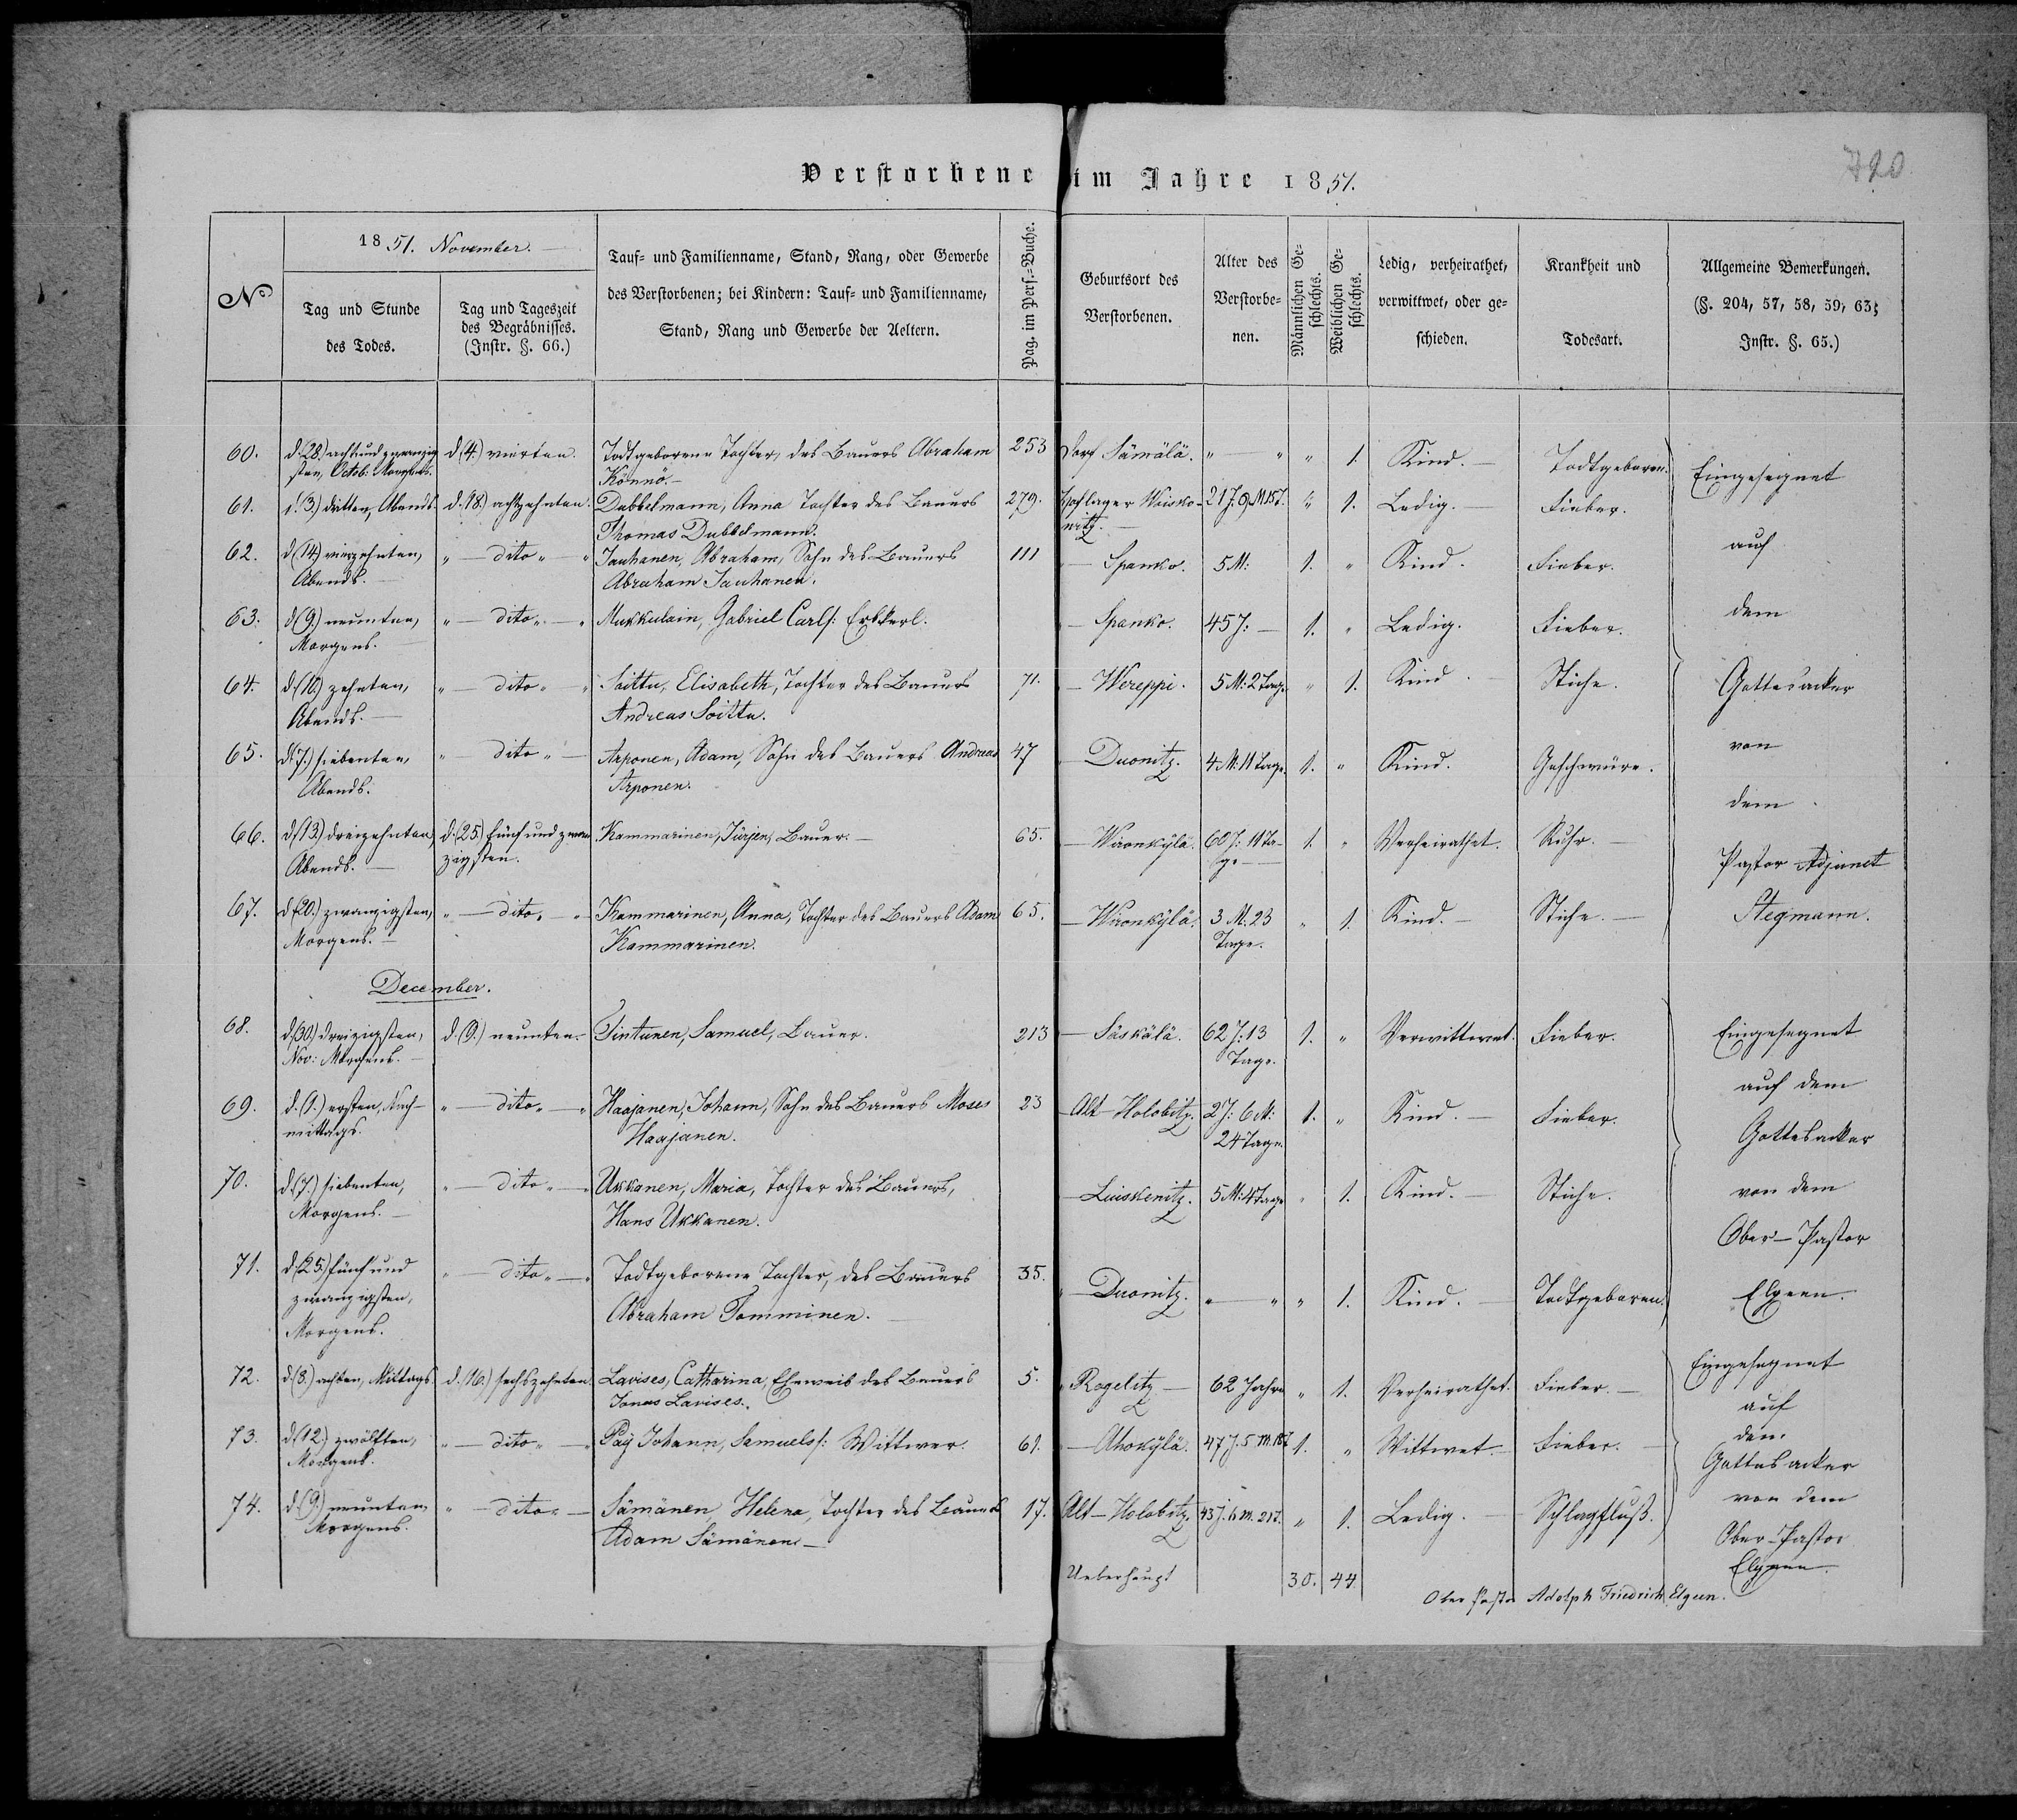 Verstorbene im Jahre 1851.
720
No
1851. November.
Tag und Stunde
des Todes.
Tag und Tageszeit
des Begräbnisses.
(Instr. §. 66.)
Tauf- und Familienname, Stand, Rang, oder Gewerbe
des Verstorbenen; bei Kindern: Tauf- und Familienname,
Stand, Rang und Gewerbe der Aeltern.
Pag. im Pers.-Buche.
Geburtsort des
Verstorbenen.
Alter des
Verstorbe-
nen.
Männlichen Ge-
schlechts.
Weiblichen Ge-
schlechts.
Ledig, verheirathet,
verwittwet, oder ge-
schieden.
Krankheit und
Todesart.
Allgemeine Bemerkungen.
(§. 204, 57, 58, 59, 63;
Instr. §. 65.)
60. d. (28.) achtundzwanzig d. (4.) vierten. Todtgeborene Tochter, des Bauers Abraham 253 Dorf Sämälä. " — " " 1. Kind. — Todtgeboren.
sten, Octob: Morgens. Könnö. —
61. d. (3.) dritten, Abends. d. (18.) achtzehnten. Dubbelmann, Anna Tochter des Bauers 279. Hoflager Woisko- 21 J. 9 M 15 T. " 1. Ledig. — Fieber.
Thomas Dubbelmann. nitz. —
62. d. (14.) vierzehnten, " — dito " — " Jauhanen, Abraham, Sohn des Bauers 111 " — Spanko. 5 M: 1. " Kind. Fieber.
Abends. — Abraham Jauhanen.
63. d. (9.) neunten, " — dito " — " Mukkulain, Gabriel Carls: Erbkerl. " — Spanko. 45 J: — 1. " Ledig. Fieber.
Morgens.
64. d. (10.) zehnten, " — dito " — " Soittu, Elisabeth, Tochter des Bauers 71. " — Wereppi. 5 M: 2 Tage " 1. Kind. Stiche.
Abends. — Andreas Soittu.
65. d. (7.) siebenten, " — dito " — Arponen, Adam, Sohn des Bauers Andreas 47 " — Duonitz. 4 M: 11 Tage. 1. " Kind. Geschwüre.
Abends. Arponen.
66. d. (13.) dreizehnten, d. (25.) fünfundzwan Kammarinen, Jürjen, Bauer. — 65. — Wironkylä. 60 J: 11 Ta- 1. " Verheirathet. Ruhr. —
Abends. — zigsten. ge —
67. d. (20.) zwanzigsten, " — dito " — " Kammarinen, Anna, Tochter des Bauers Adam 65. — Wironkylä. 3 M. 23 " 1. Kind. — Stiche. —
Morgens. — Kammarinen. Tage.
Eingesegnet
auf
dem
Gottesacker
von
dem
Pastor Adjunct
Stegmann.
December.
68. d. (30.) dreizigsten, d. (9.) neunten. — Tintunen, Samuel, Bauer. 213 — Säskälä. 62 J: 13 1. " Verwittwet. Fieber.
Nov: Morgens. — Tage.
69. d. (1.) ersten, Nach- " — dito " — " Haajanen, Johann, Sohn des Bauers Moses 23 — Alt-Holobitz. 2 J: 6 M: 1. " Kind. — Fieber.
mittags. Haajanen. 24 Tage.
70. d. (7.) siebenten, " — dito " — " Ukkanen, Maria, Tochter des Bauers, — Liuskenitz. 5 M: 4 Tage " 1. Kind. — Stiche.
Morgens. — Hans Ukkanen.
71. d. (25.) fünf und " — dito " — " Todtgeborene Tochter, des Bauers 35. " — Duonitz. " — " " 1. Kind. — Todtgeboren.
zwanzigsten, Abraham Tomminen. —
Morgens.
Eingesegnet
auf dem
Gottesacker
von dem
Ober-Pastor
Elgeen.
72. d. (8.) achten, Mittags. d. (16.) sechszehnten. Lavises, Catharina, Eheweib des Bauers 5. " Rogelitz — 62 Jahre " 1. Verheirathet. Fieber. —
Jonas Lavises.
73. d. (12.) zwölften, " — dito " — " Pay Johann, Samuels: Wittwer. 61. " — Ahokylä. 47 J. 5 M. 18 T. 1. " Wittwet. — Fieber. —
Morgens.
74. d. (9.) neunten, " — dito " — Sämänen, Helena, Tochter des Bauers 17. Alt-Holobitz. 43 J. 6 M. 21 T. " 1. Ledig. — Schlagfluß.
Morgens. Adam Sämänen. —
Eingesegnet
auf
dem
Gottesacker
von dem
Ober-Pastor
Elgeen.
Ueberhaupt 30. 44.
Ober Pastor Adolph Friedrich Elgeen.